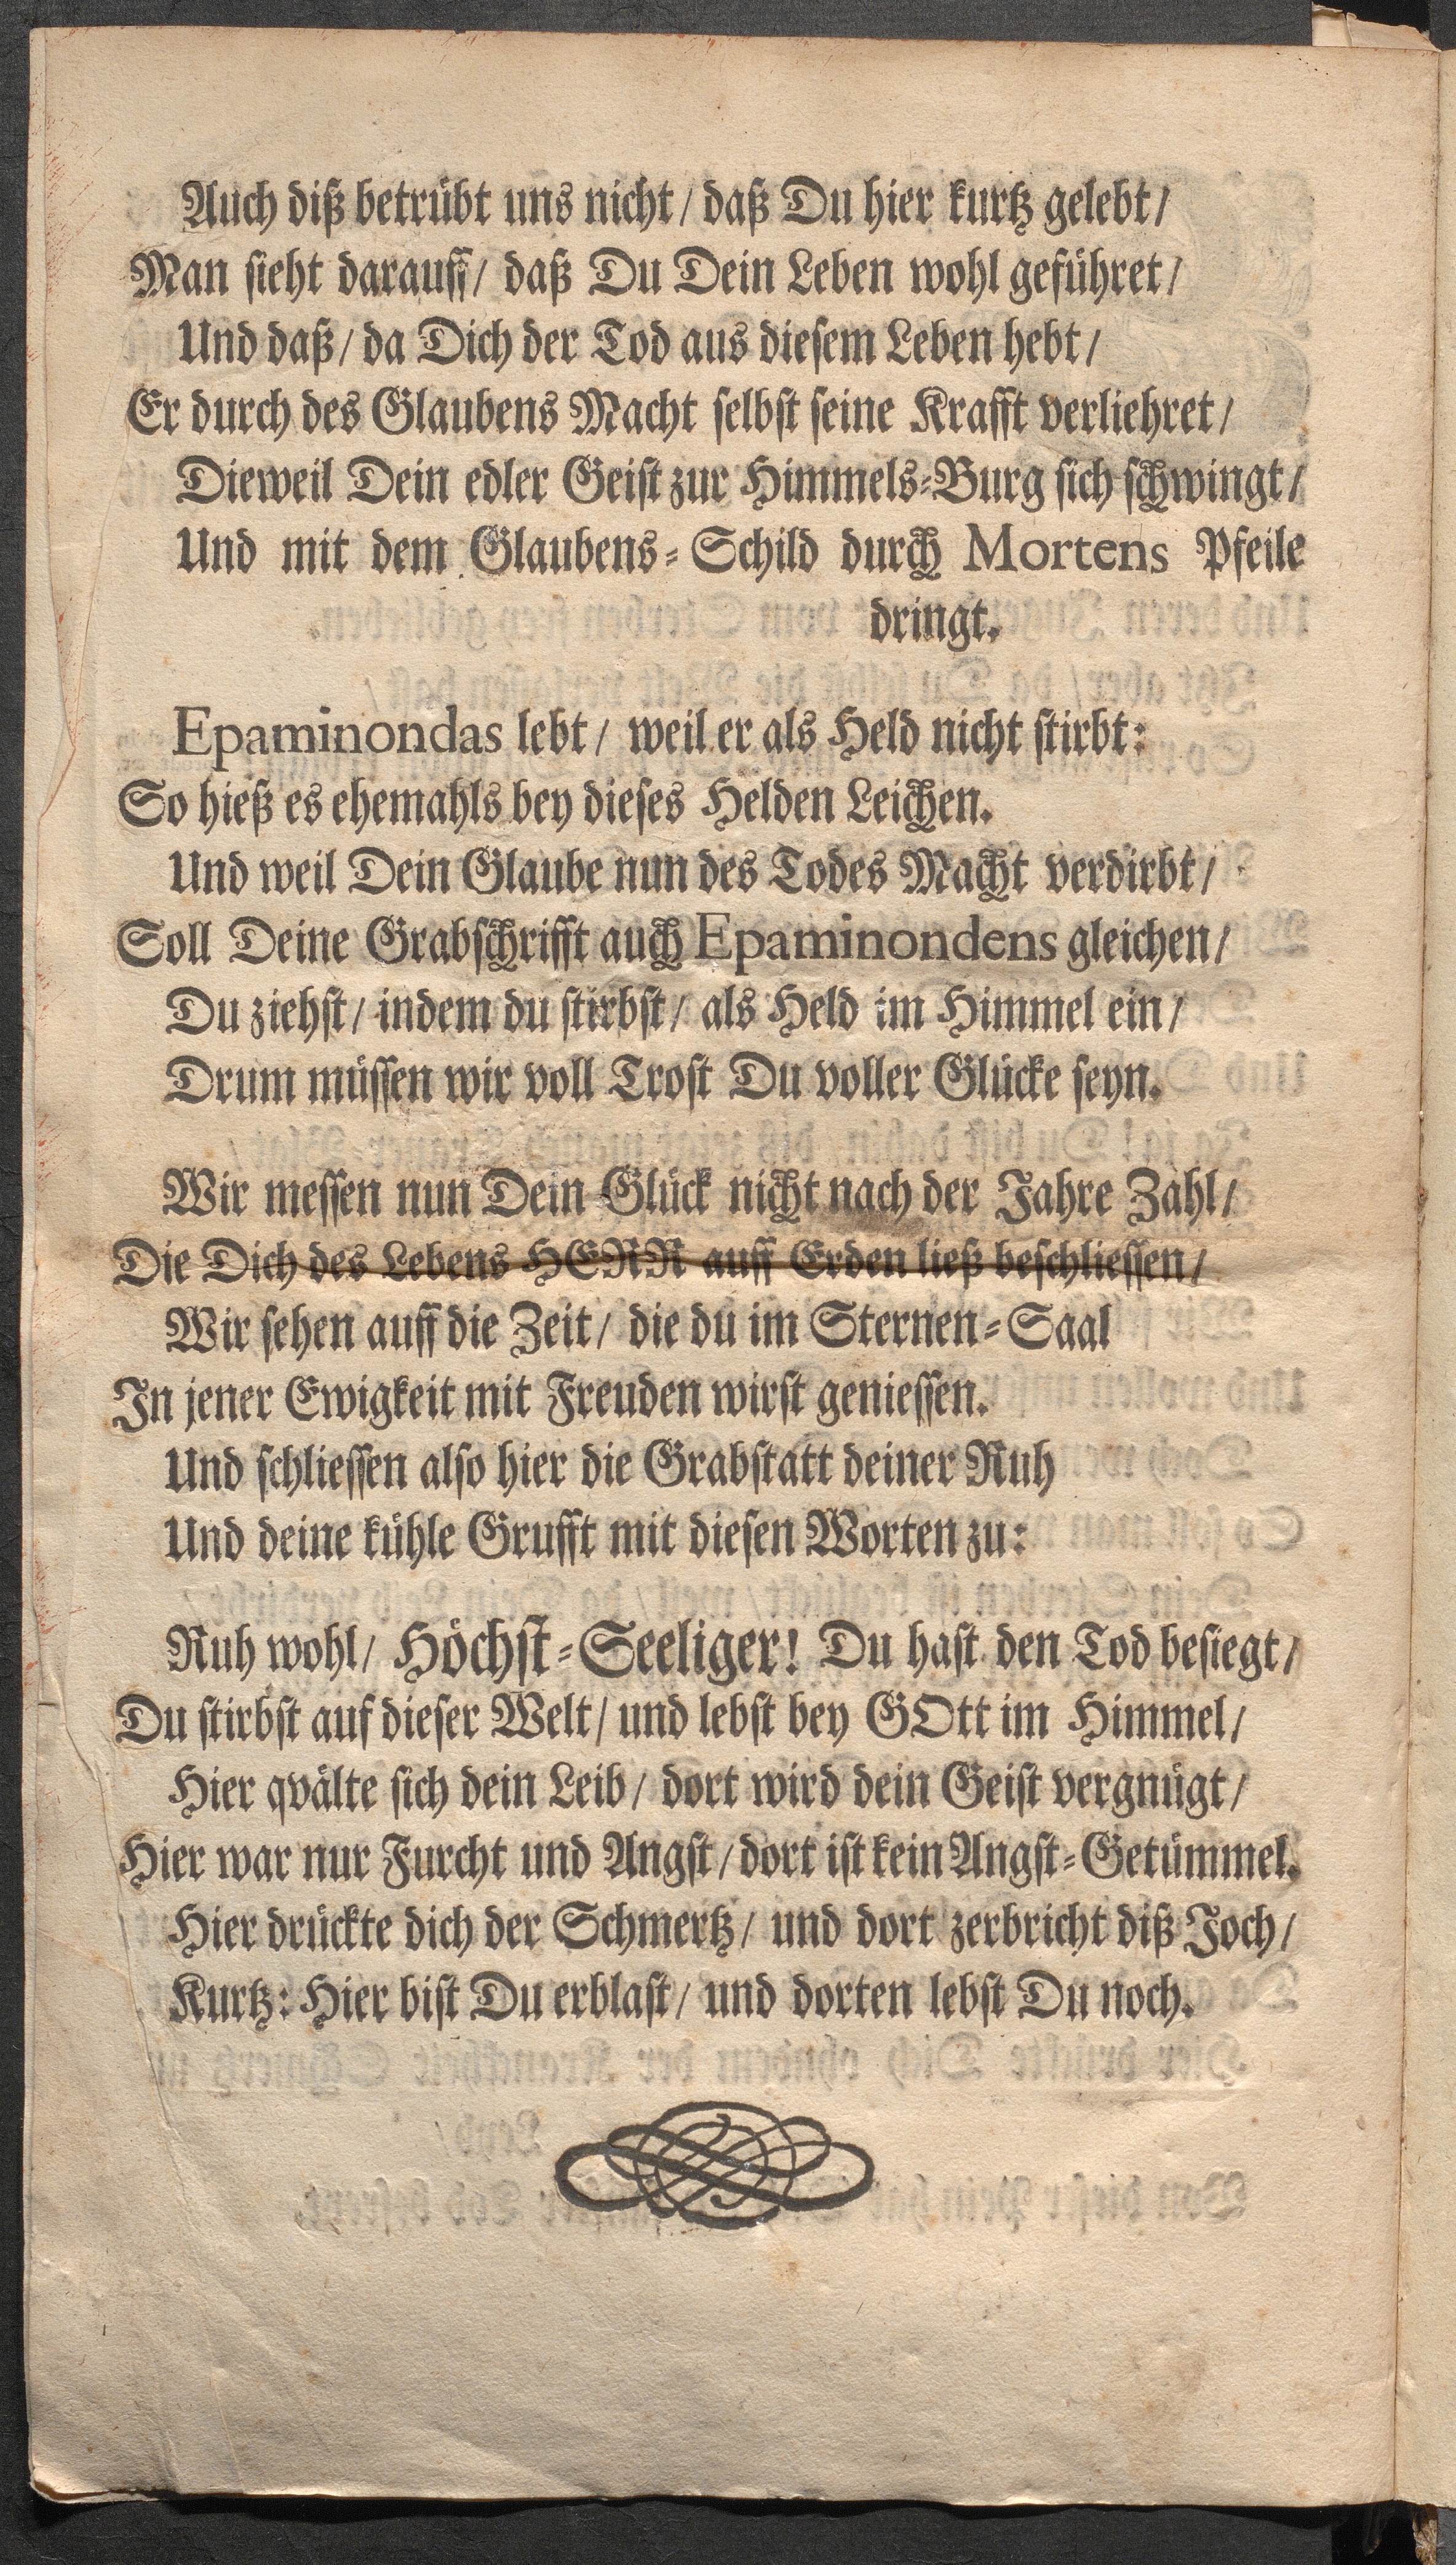 Auch diß betrübt uns nicht / daß Du hier kurtz gelebt /
Man sieht darauff / daß Du Dein Leben wohl geführet /
Und daß / da Dich der Tod aus diesem Leben hebt /
Er durch des Glaubens Macht selbst seine Krafft verliehret /
Dieweil Dein edler Geist zur Himmels-Burg sich schwingt /
Und mit dem Glaubens-Schild durch Mortens Pfeile
dringt.
Epaminondas lebt / weil er als Held nicht stirbt:
So hieß es ehemahls bey dieses Helden Leichen.
Und weil Dein Glaube nun des Todes Macht verdirbt /
Soll Deine Grabschrifft auch Epaminondens gleichen /
Du ziehst / indem du stirbst / als Held im Himmel ein /
Drum müssen wir voll Trost Du voller Glücke seyn.
Wir messen nun Dein Glück nicht nach der Jahre Zahl /
Die Dich des Lebens HERR auff Erden ließ beschliessen /
Wir sehen auff die Zeit / die du im Sternen-Saal
In jener Ewigkeit mit Freuden wirst geniessen.
Und schliessen also hier die Grabstatt deiner Ruh
Und deine kühle Grufft mit diesen Worten zu:
Ruh wohl / Höchst-Seeliger! Du hast den Tod besiegt /
Du stirbst auf dieser Welt / und lebst bey GOtt im Himmel /
Hier qvälte sich dein Leib / dort wird dein Geist vergnügt /
Hier war nur Furcht und Angst / dort ist kein Angst-Getümmel.
Hier drückte dich der Schmertz / und dort zerbricht diß Joch /
Kurtz: Hier bist Du erblast / und dorten lebst Du noch.